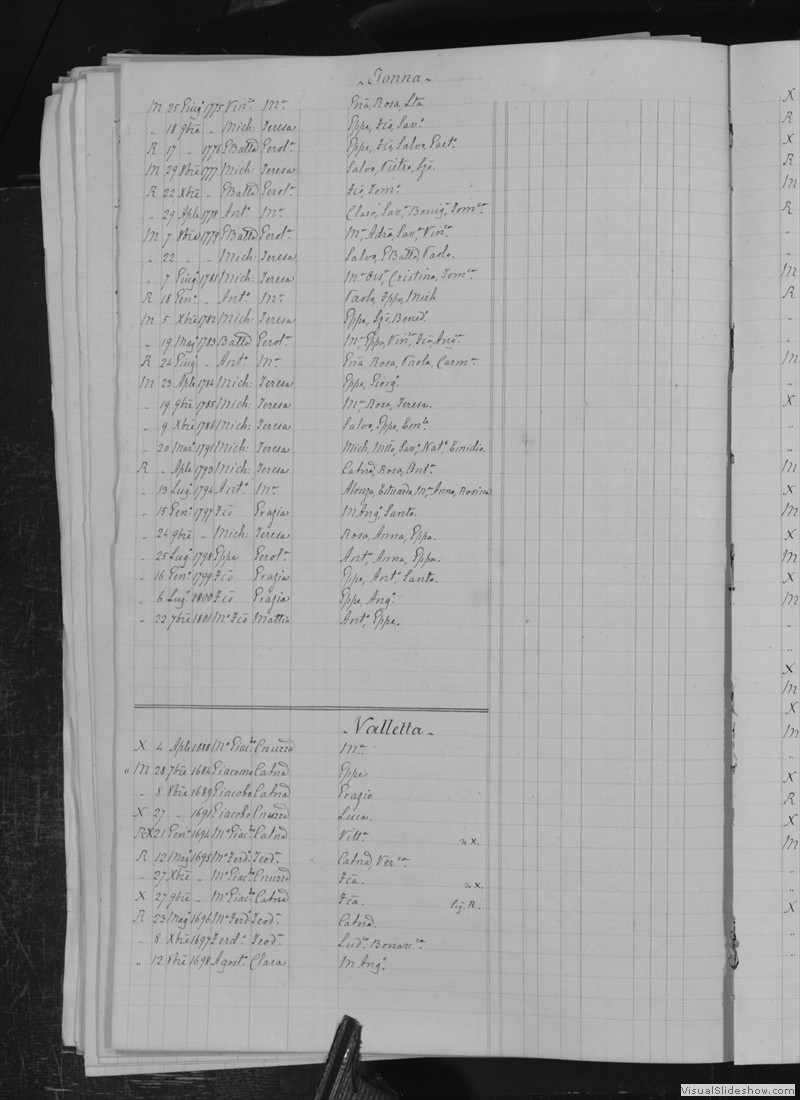 Tonna
M 25 Giug.º 1775 Vin.zo M.ª Gña, Rosa, Lta
„ 18 9bre „ Mich: Teresa Gppe, Fcõ, Sav.ª
R 17 „ 1776 GBatta Gerol.ª Gppe, Fcõ, Salvo, Gaet.º
M 29 8bre 1777 Mich: Teresa Salvo, Pietro,
R 22 Xbre „ GBatta Gerol.ª Fcõ, Tom.º
„ 29 Aple 1778 Ant.º M.ª Clara, Sav.ª, Benig.ª, Tom.ª
M 7 8bre 1779 GBatta Gerol.ª M.ª, Adrõ, Sav.ª, Vin.zo
„ 22 „ „ Mich: Teresa Salvo, GBatta, Paolo.
„ 7 Giug.º 1781 Mich: Teresa M.ª Ors.ª, Cristina, Tom.ª
R 18 Gen.º „ Ant.º M.ª Paolo, Gppe, Mich
M 5 Xbre 1782 Mich: Teresa Gppe, Bened.º
„ 19 Mag.º 1783 Batta Gerol.ª M.ª, Gppe, Vin.zo, Fcõ, Ang.ª
R 24 Giug.º „ Ant.º M.ª Gña, Rosa, Paola, Carm.ª
M 23 Aple 1784 Mich: Teresa Gppe, Giorg.º
„ 19 9bre 1785 Mich: Teresa M.ª, Rosa, Teresa.
„ 9 Xbre 1786 Mich: Teresa Salvo, Gppe, Em.le
„ 20 Mar.º 1791 Mich: Teresa Mich, Sav.ª, Nat.º, Emidio.
R „ Aple 1793 Mich: Teresa Catnã, Rosa, Ant.ª
„ 13 Lug.º 1794 Ant.º M.ª Alonza, M.ª Anna, Rosina
„ 15 Gen.º 1797 Fcõ Grazia M Ang.ª, Santa.
„ 24 9bre „ Mich: Teresa Rosa, Anna, Gppa.
„ 25 Lug.º 1798 Gppe Gerol.ª Ant.ª, Anna, Gppa.
„ 16 Gen.º 1799 Fcõ Grazia Gppe, Ant.º, Santo.
„ 6 Lug.º 1800 Fcõ Grazia Gppe, Ang.º
„ 22 7bre 1801 M.º Fcõ Mattia Ant.º, Gppe.
Valletta
X 4 Aple 1688 M.º Giac.bo M.ª
„ M 28 7bre 1684 Giacomo Catnã Gppe
„ 8 8bre 1689 Giacobo Catnã Grazio
X 27 „ 1691 Giacobo Luca.
RX 21 Gen.º 1694 M.º Giac.bo Catnã Vitt.ª a X.
R 12 Mag.º 1695 M.º Ferd.º Teod.ª Catnã, Ver.ca
„ 27 Xbre „ M.º Giac.bo Fcã. a X.
X 27 9bre „ M.º Giac.bo Catnã Fcã. R.
R 23 Mag.º 1696 M.º Ferd.º Teod.ª Catnã.
„ 8 Xbre 1697 Ferd.º Teod.ª Lud.ª Bonav.ra
„ 12 8bre 1698 Agost.º Clara M Ang.ª
VisualSlideshow.com